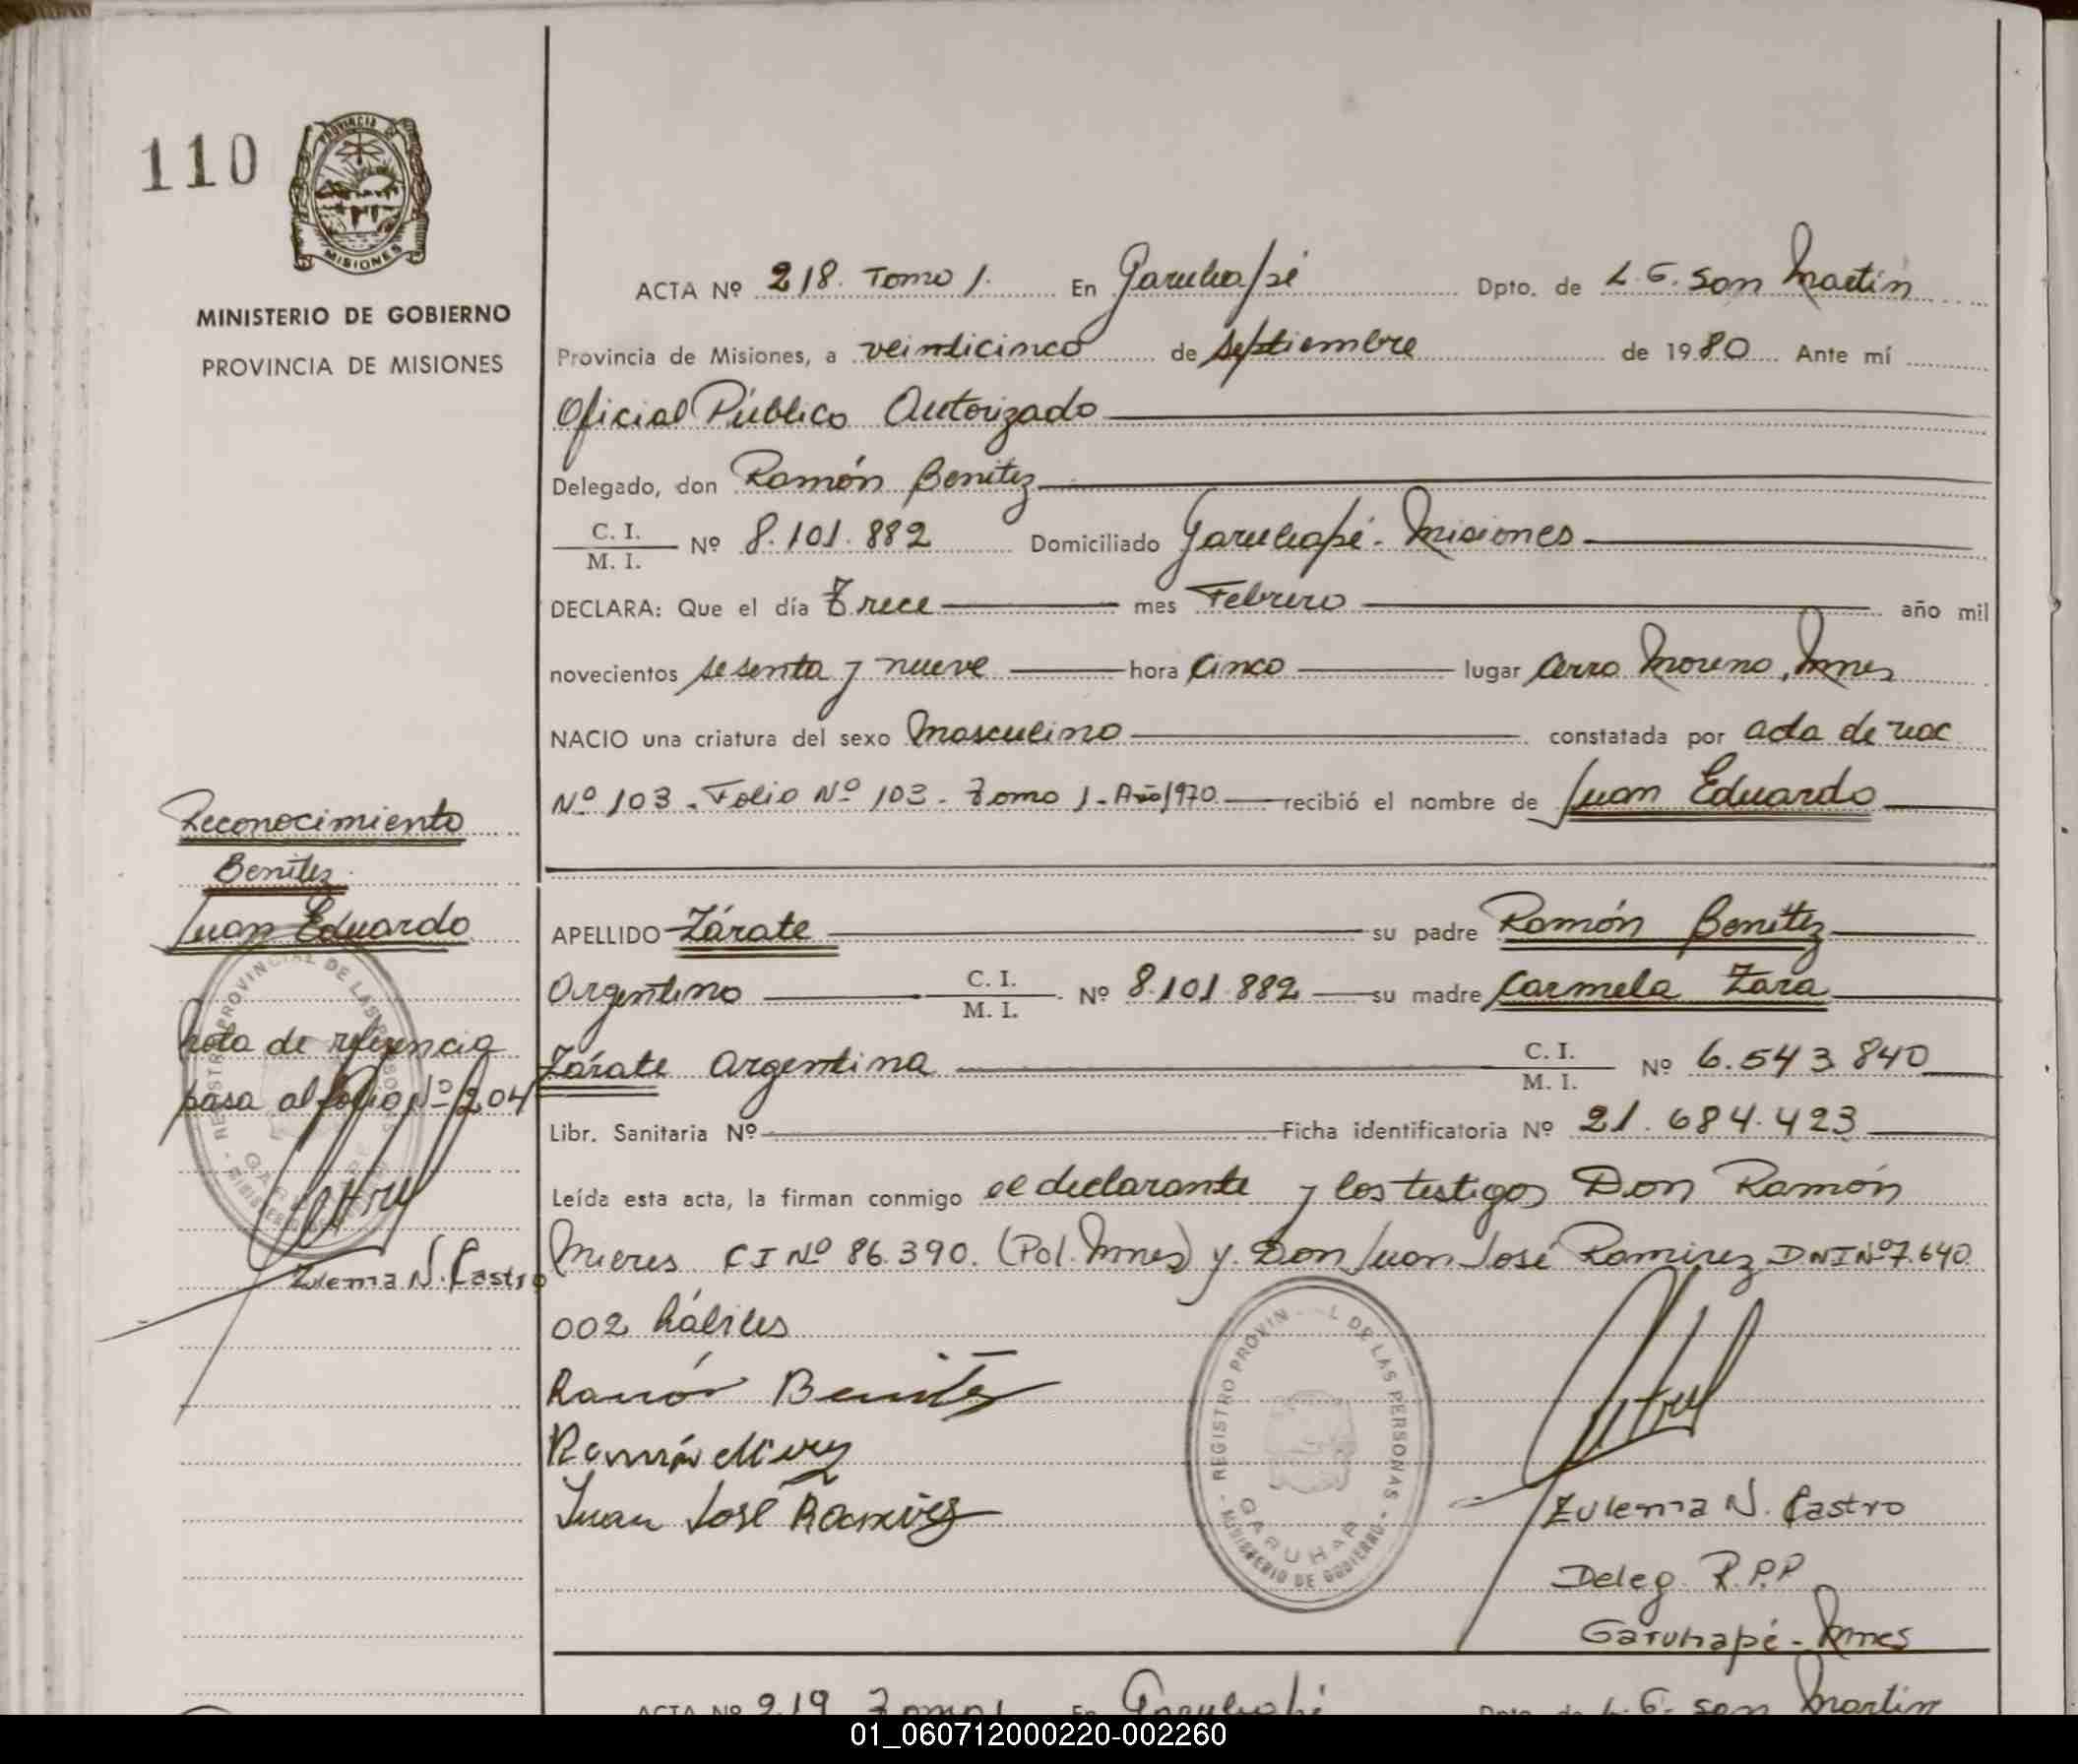 110
PROVINCIA DE
MISIONES
MINISTERIO DE GOBIERNO
PROVINCIA DE MISIONES
ACTA Nº 218. Tomo 1. En Garuhapé Dpto. de L. G. San Martín
Provincia de Misiones, a veinticinco de Septiembre de 1980 Ante mí
Oficial Público Autorizado
Delegado, don Ramón Benitez
C. I.
M. I. Nº 8.101.882 Domiciliado Garuhapé - Misiones
DECLARA: Que el día Trece mes Febrero año mil
novecientos sesenta y nueve hora Cinco lugar Cerro Moreno, Mnes
NACIO una criatura del sexo Masculino constatada por acta de nac
Nº 103. Folio Nº 103 - Tomo 1 - Año 1970 recibió el nombre de Juan Eduardo
APELLIDO Zárate su padre Ramón Benitez
Argentino C. I.
M. I. Nº 8.101.882 su madre Carmela Zara
Zárate Argentina C. I.
M. I. Nº 6.543.840
Libr. Sanitaria Nº Ficha identificatoria Nº 21.684.423
Leída esta acta, la firman conmigo el declarante y los testigos Don Ramón
Mieres CI Nº 86.390. (Pol. Mnes) y Don Juan José Ramirez DNI Nº 7.640.
002 hábiles
Ramón Benitez
Ramón
Juan José Ramirez
REGISTRO PROVIN L DE LAS PERSONAS -
GARUHAP
MINISTERIO DE GOBIERNO
Zulema N. Castro
Deleg R.P.P
Garuhapé - Mnes
Reconocimiento
Benitez
Juan Eduardo
REGISTRO PROVINCIAL DE LAS PERSONAS
Nota de referencia
pasa al folio Nº 204
Zulema N. Castro
ACTA Nº 219 Tomo 1 En Garuhapé Dpto. de L. G. San Martin
01_060712000220-002260